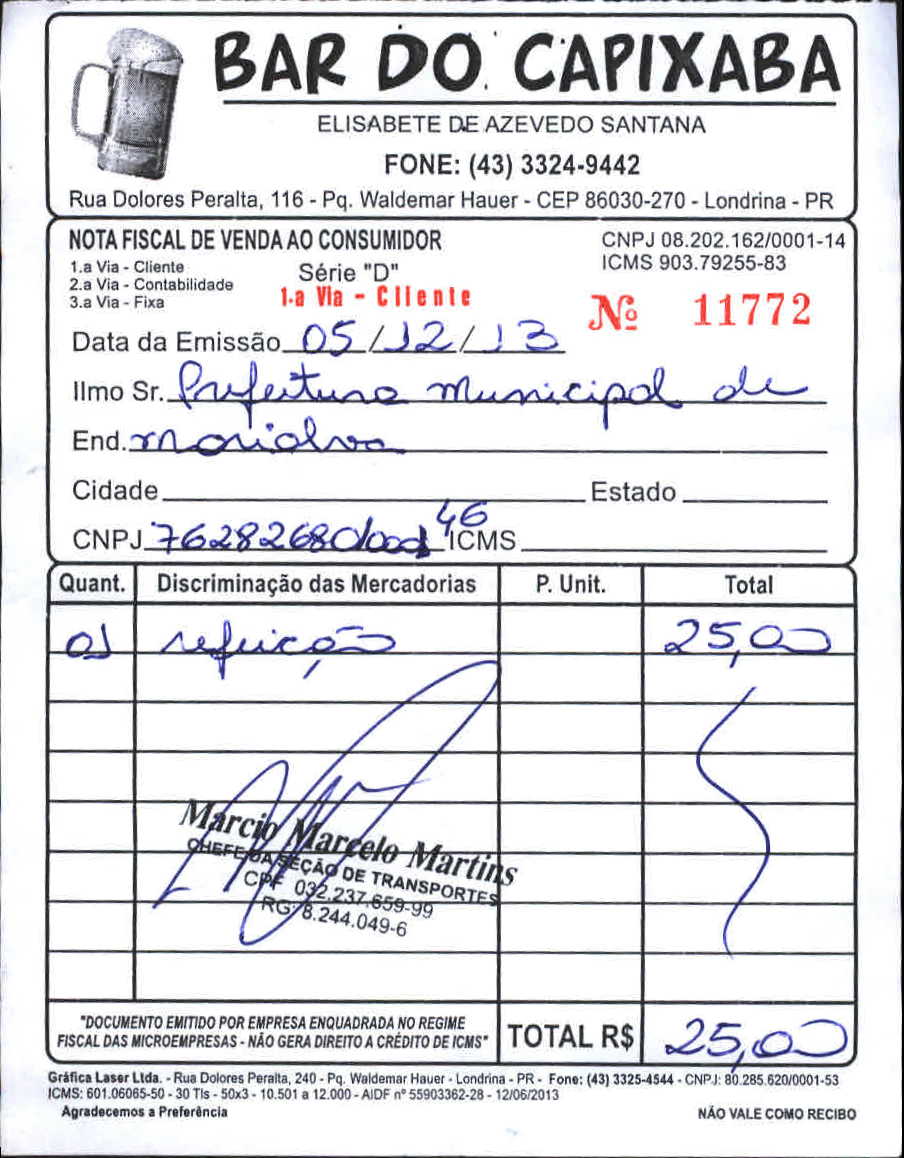 BAR DO CAPIXABA
ELISABETE DE AZEVEDO SANTANA
FONE: (43) 3324-9442
Rua Dolores Peralta, 116 - Pq. Waldemar Hauer - CEP 86030-270 - Londrina - PR
NOTA FISCAL DE VENDA AO CONSUMIDOR
CNPJ 08.202.162/0001-14
1.a Via - Cliente
Série "D"
ICMS 903.79255-83
2.a Via - Contabilidade
1.a Via - Cliente
3.a Via - Fixa
Nº 11772
Data da Emissão 05/12/13
Ilmo Sr. Prefeitura municipal de
End. marialva
Cidade Estado
CNPJ 76282680/0001 46 ICMS
Quant. Discriminação das Mercadorias P. Unit. Total
01 refeição 25,00
Marcio Marcelo Martins
CHEFE DA SEÇÃO DE TRANSPORTES
CPF 032.237.659-99
RG: 8.244.049-6
"DOCUMENTO EMITIDO POR EMPRESA ENQUADRADA NO REGIME
FISCAL DAS MICROEMPRESAS - NÃO GERA DIREITO A CRÉDITO DE ICMS"
TOTAL R$ 25,00
Gráfica Laser Ltda. - Rua Dolores Peralta, 240 - Pq. Waldemar Hauer - Londrina - PR - Fone: (43) 3325-4544 - CNPJ: 80.285.620/0001-53
ICMS: 601.06065-50 - 30 Tls - 50x3 - 10.501 a 12.000 - AIDF nº 55903362-28 - 12/06/2013
Agradecemos a Preferência
NÃO VALE COMO RECIBO